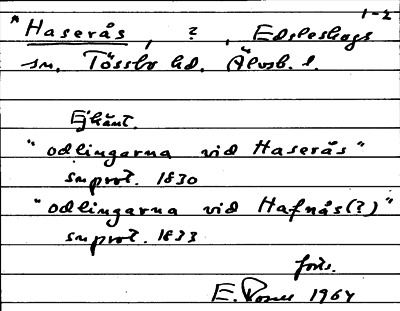 1-2
*Haserås, ?, Edsleskogs
sn. Tössbo hd. Älvsb. l.
Ej känt.
"odlingarna vid Haserås"
snprot. 1830
"odlingarna vid Hafnås(?)"
snprot. 1833
forts.
E. 1964